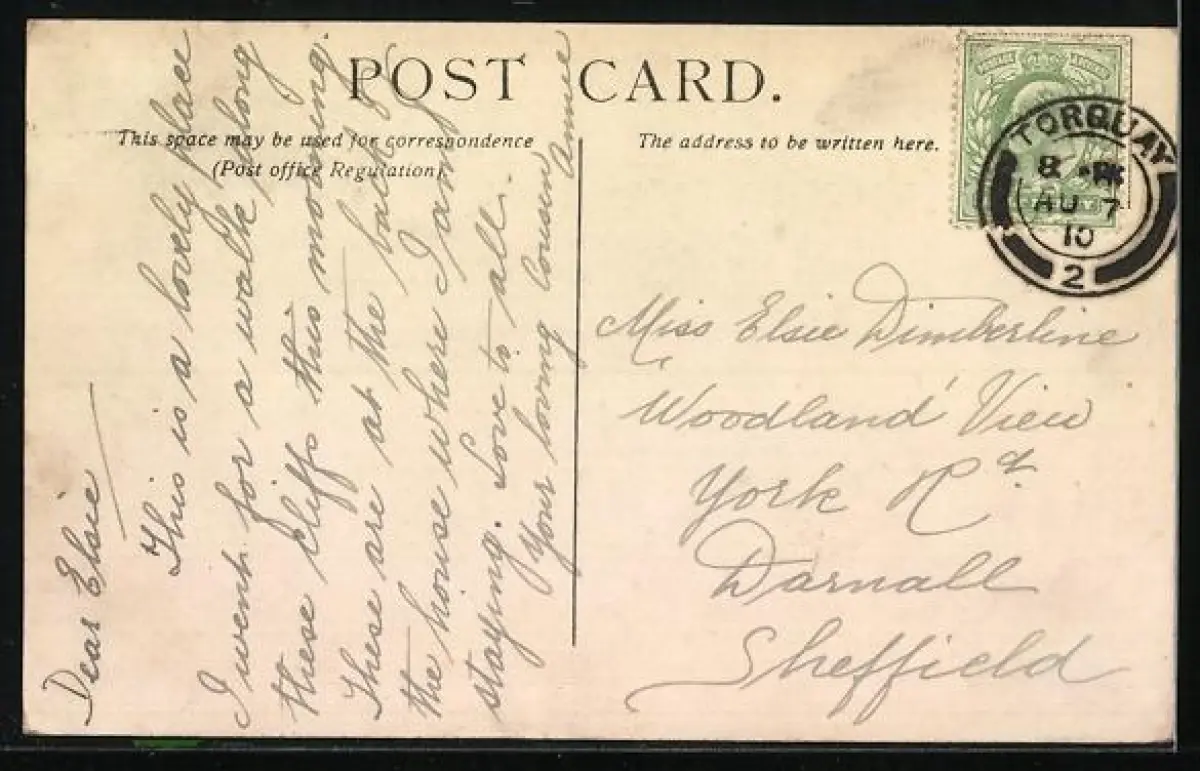 POST CARD.
This space may be used for correspondence
(Post office Regulation).
The address to be written here.
TORQUAY
8 PM
AU 7
10
2
Dear Elsie
This is a lovely place
I went for a walk along
these cliffs this morning.
These are at the back of
the house where I am
staying. Love to all.
Your loving Cousin Annie
Miss Elsie Dimberline
Woodland View
York Rd.
Darnall
Sheffield